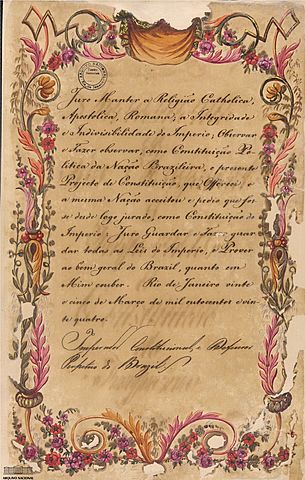 Juro Manter a Religião Catholica,
Apostolica, Romana; a Integridade
e Indivisibilidade do Imperio; Observar
e Fazer observar, como Constituição Po-
litica da Nação Brazileira, o presente
Projecto de Constituição, que Offereci, e
a mesma Nação aceitou e pedio que fos-
se desde logo jurado, como Constituição do
Imperio: Juro Guardar e Fazer guar-
dar todas as Leis do Imperio, e Prover
ao bem geral do Brazil, quanto em
Mim couber. Rio de Janeiro vinte
e cinco de Março de mil outocentos e vin-
te quatro.
Imperador Constitucional, e Defensor
Perpetuo do Brazil
ARQUIVO NACIONAL